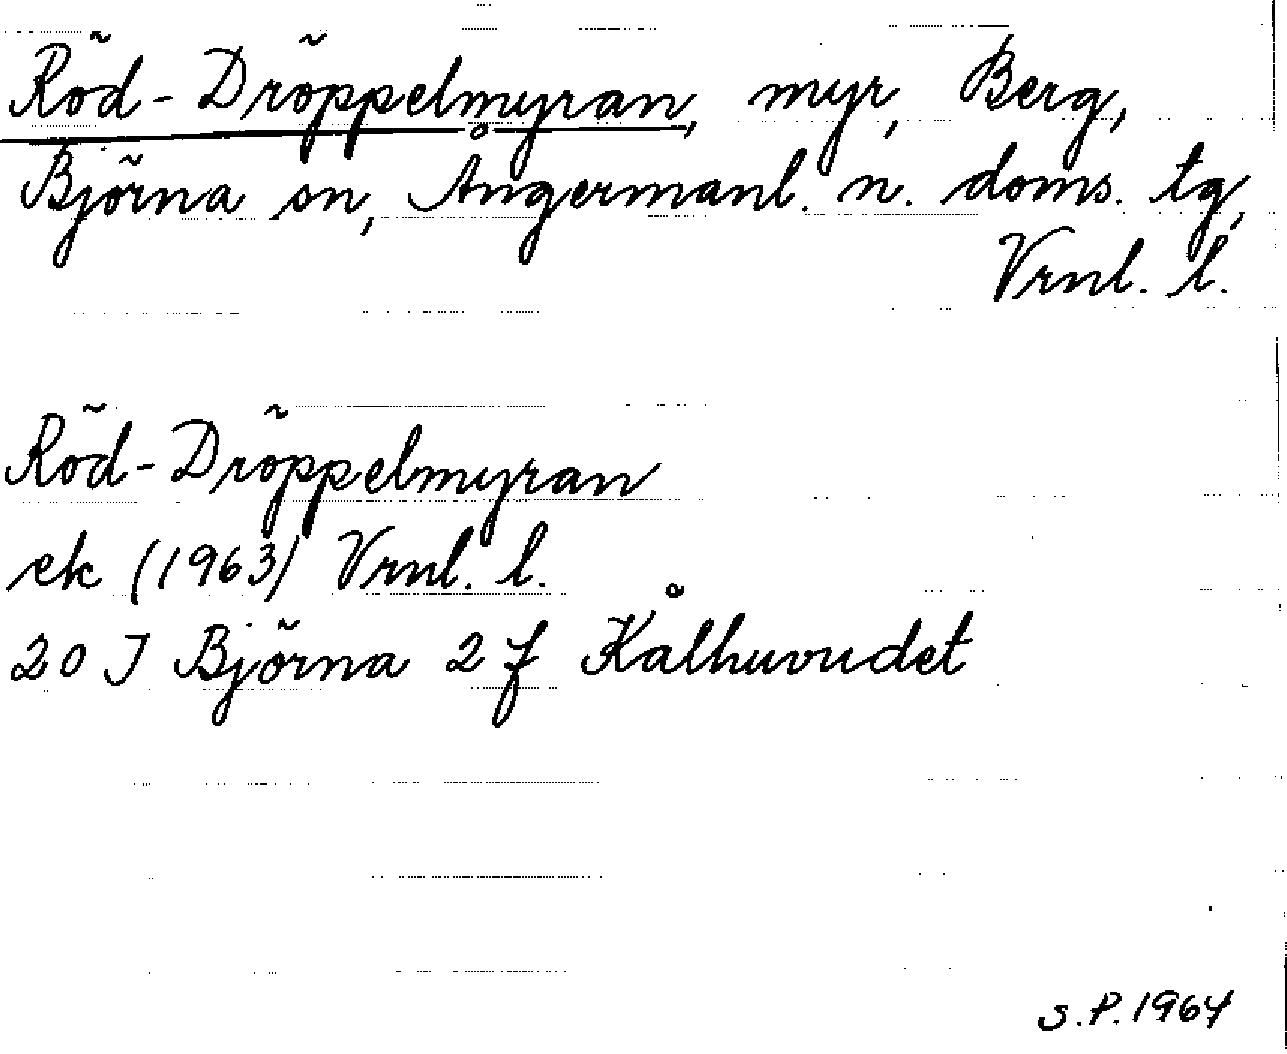 Röd-Dröppelmyran, myr, Berg,
Björna sn, Ångermanl. n. doms. tg,
Vrnl. l.
Röd-Dröppelmyran
ek (1963) Vrnl. l.
20 J Björna 2 f Kålhuvudet
S.P. 1964